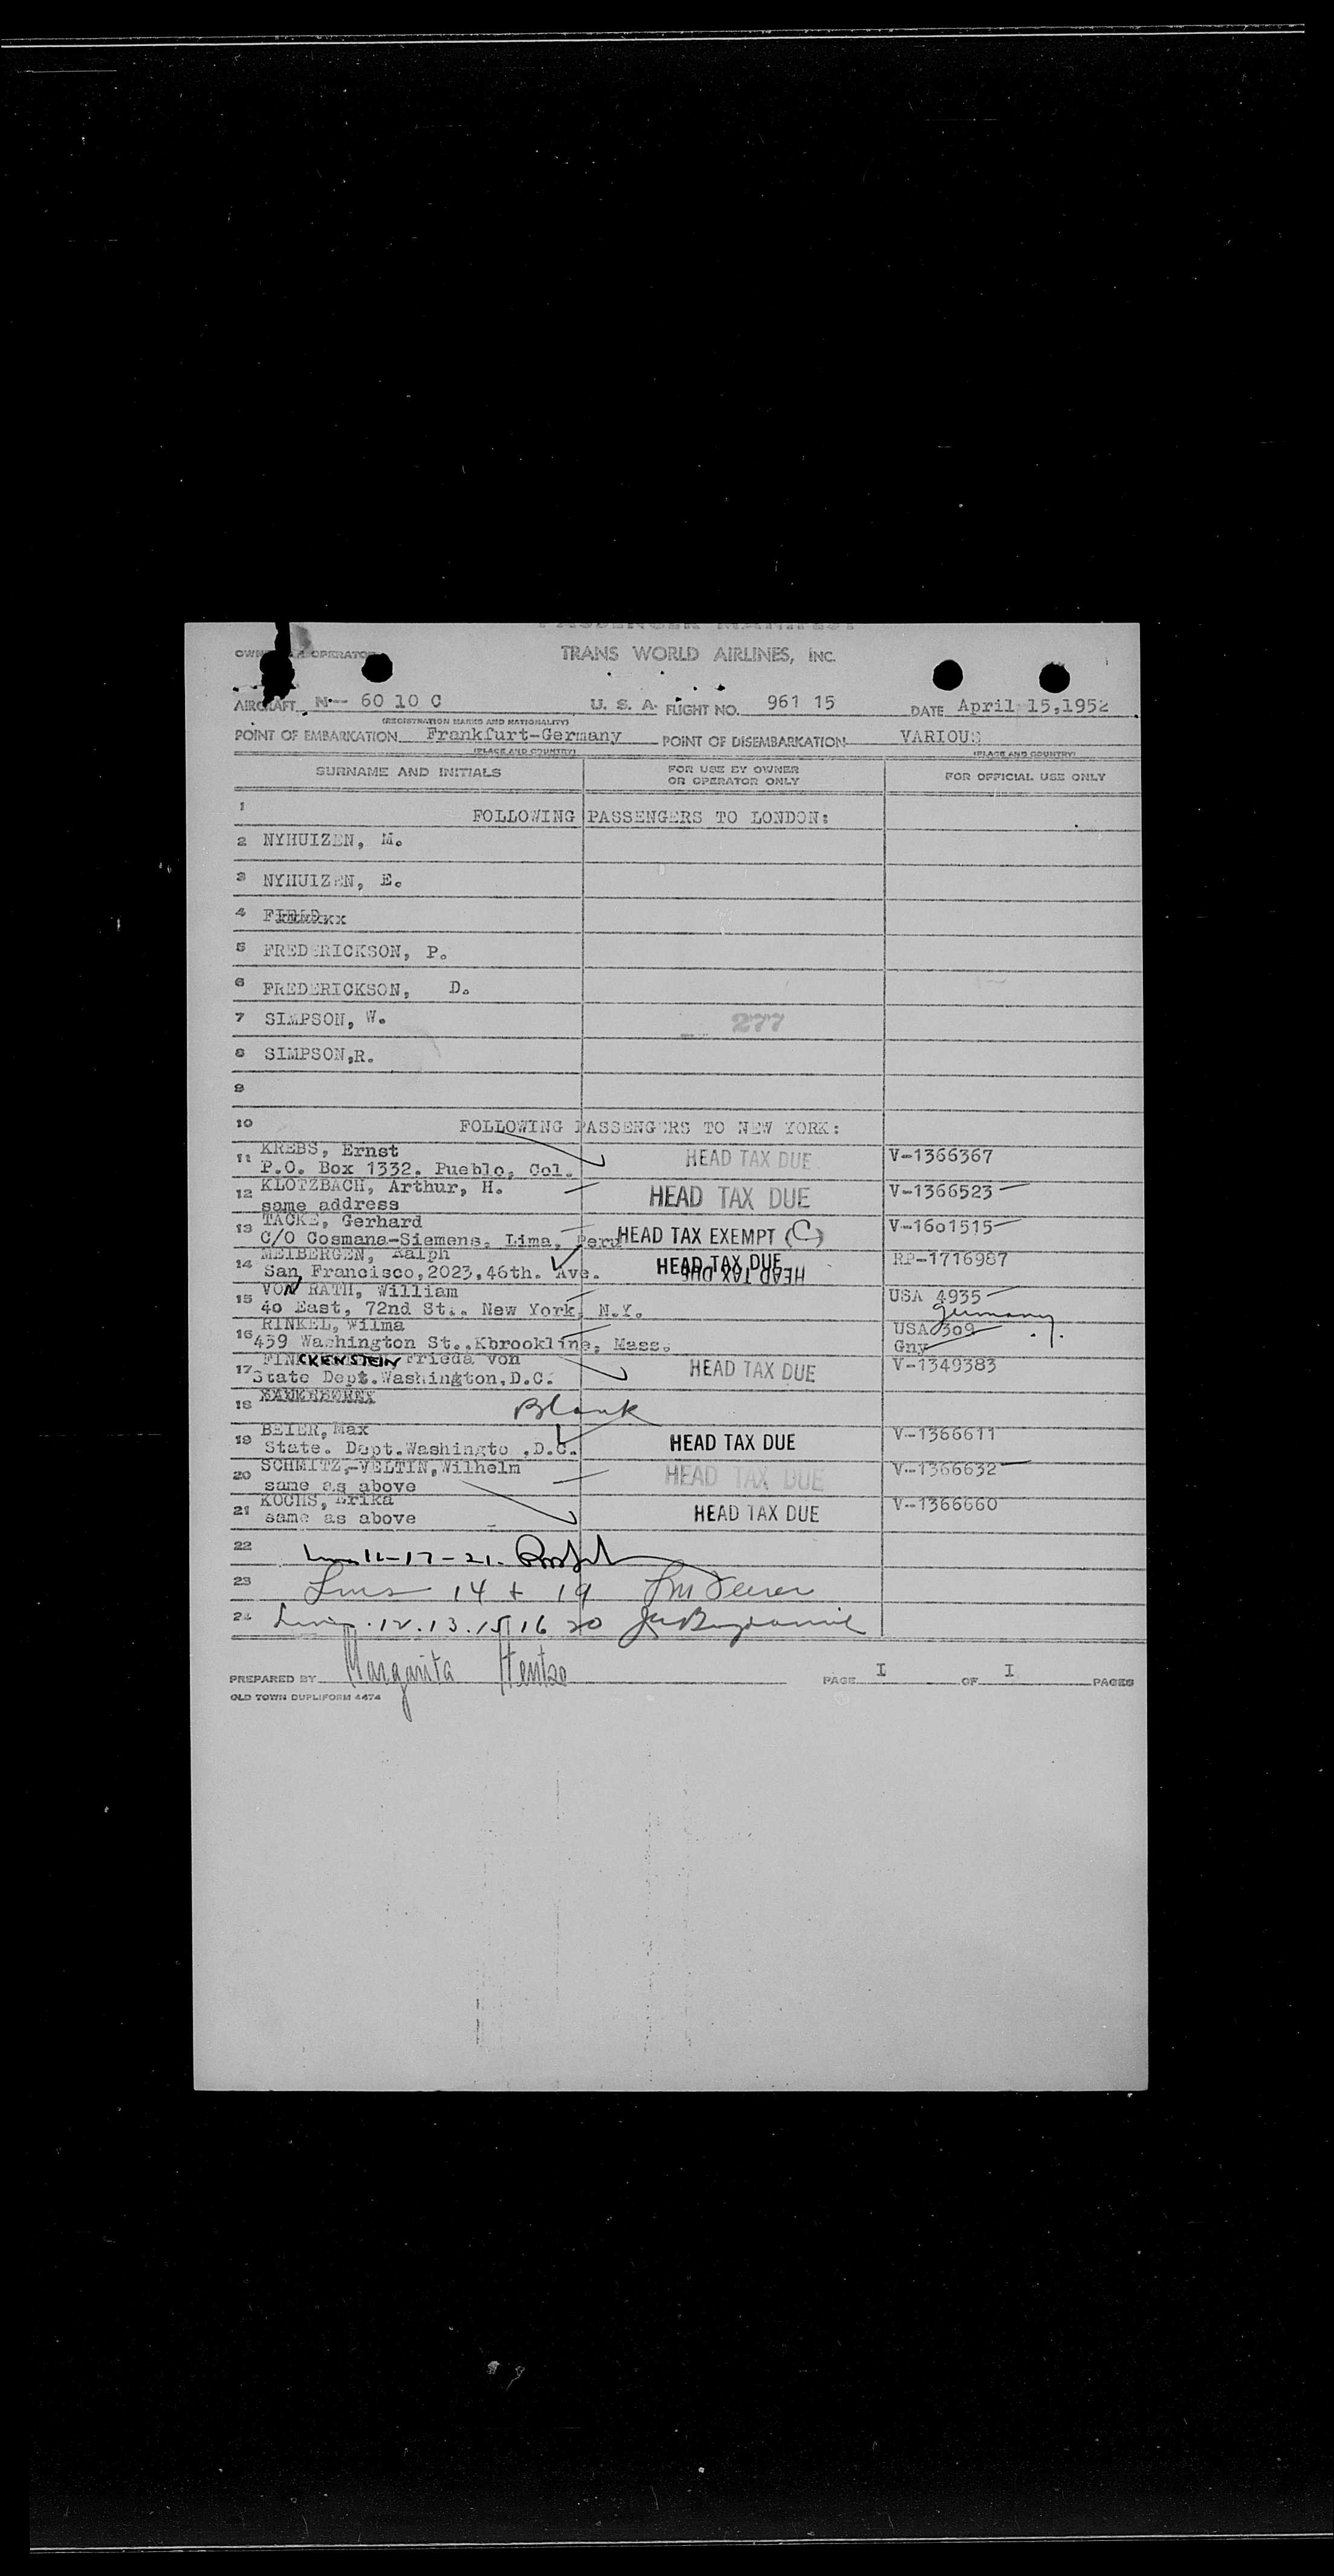 PASSENGER MANIFEST
TRANS WORLD AIRLINES, INC.
AIRCRAFT N-- 60 10 C U. S. A. FLIGHT NO. 961 15 DATE April 15,1952
(REGISTRATION MARKS AND NATIONALITY)
POINT OF EMBARKATION Frankfurt-Germany POINT OF DISEMBARKATION VARIOUS
(PLACE AND COUNTRY) (PLACE AND COUNTRY)
SURNAME AND INITIALS FOR USE BY OWNER OR OPERATOR ONLY FOR OFFICIAL USE ONLY
1 FOLLOWING PASSENGERS TO LONDON:
2 NYHUIZEN, M.
3 NYHUIZEN, E.
4
5 FREDERICKSON, P.
6 FREDERICKSON, D.
7 SIMPSON, W. 277
8 SIMPSON,R.
9
10 FOLLOWING PASSENGERS TO NEW YORK:
11 KREBS, Ernst HEAD TAX DUE V-1366367
P.O. Box 1332. Pueblo, Col.
12 KLOTZBACH, Arthur, H. HEAD TAX DUE V-1366523
same address
13 TACKE, Gerhard HEAD TAX EXEMPT (C) V-1601515
C/O Cosmana-Siemens, Lima, Peru
14 MEIBERGEN, Ralph HEAD TAX DUE HEAD TAX DUE RP-1716987
San Francisco,2023,46th. Ave.
15 VON RATH, William USA 4935
40 East, 72nd St.. New York, N.Y. Germany
16 RINKEL, Wilma USA 309
459 Washington St.,Kbrookline, Mass. Gny
17 FINCKENSTEIN Frieda von HEAD TAX DUE V-1349383
State Dept.Washington,D.C.
18 Blank
19 BEIER, Max HEAD TAX DUE V-1366611
State. Dept.Washingto ,D.C.
20 SCHMITZ,-VELTIN,Wilhelm HEAD TAX DUE V-1366632
same as above
21 KOCHS, Erika HEAD TAX DUE V-1366660
same as above
22 11-17-21.
23 Lines 14 + 19
24 12.13.15 16 20
PREPARED BY Margarita Hentze PAGE I OF I PAGES
OLD TOWN DUPLIFORM 4474